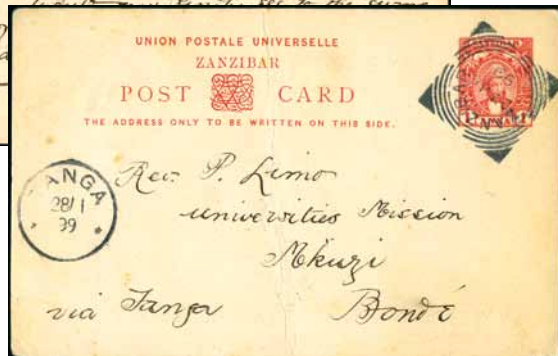 to the
UNION POSTALE UNIVERSELLE
ZANZIBAR
POST CARD
THE ADDRESS ONLY TO BE WRITTEN ON THIS SIDE.
ZANZIBAR
TANGA
28/1
99
Rev. P. Limo
Universities Mission
Mkuzi
via Tanga Bondé